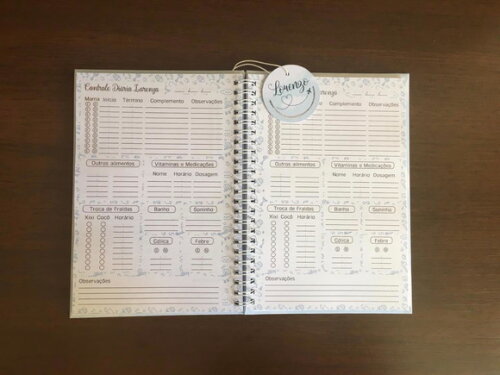 Controle Diário Lorenzo
Mama Início Término Complemento Observações
Outros alimentos Vitaminas e Medicações
Nome Horário Dosagem
Troca de Fraldas Banho Soninho
Xixi Cocô Horário
Cólica Febre
Observações
Lorenzo
Término Complemento Observações
Outros alimentos Vitaminas e Medicações
Nome Horário Dosagem
Troca de Fraldas Banho Soninho
Xixi Cocô Horário
Cólica Febre
Observações